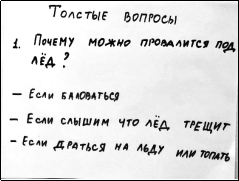 Толстые вопросы
1. Почему можно провалится под
лёд?
– Если баловаться
– Если слышим что лёд трещит
– Если драться на льду или топать